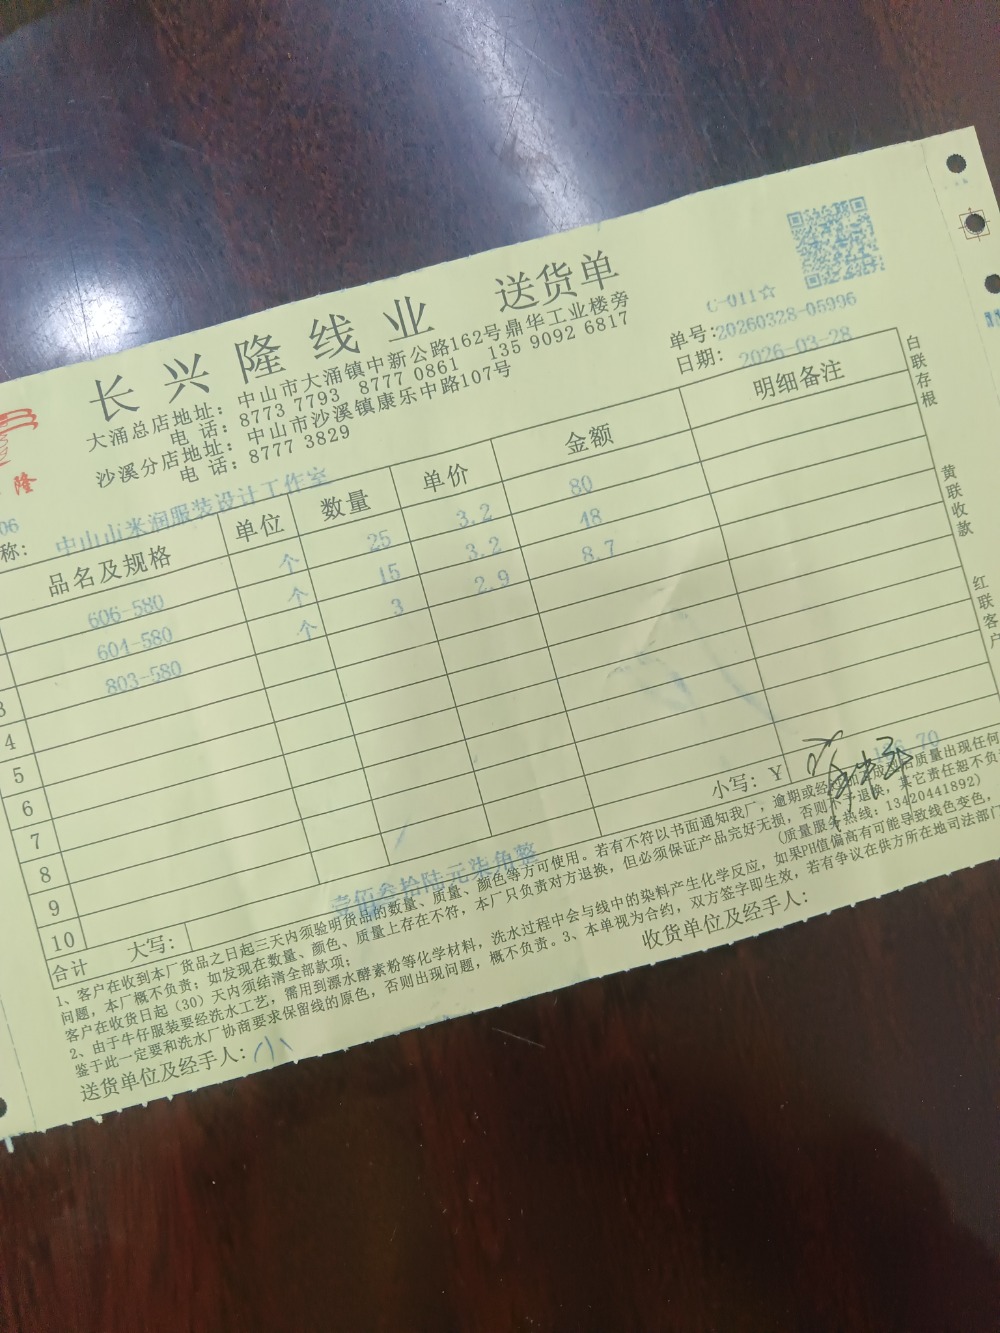 长兴隆线业 送货单
大涌总店地址：中山市大涌镇中新公路162号鼎华工业楼旁
电 话：8773 7793 8777 0861 135 9092 6817
沙溪分店地址：中山市沙溪镇康乐中路107号
电 话：8777 3829
C-011☆
单号：20260328-05996
日期：2026-03-28
隆
06
称：中山山米润服装设计工作室
品名及规格 单位 数量 单价 金额 明细备注
606-580 个 25 3.2 80
604-580 个 15 3.2 48
3 803-580 个 3 2.9 8.7
4
5
6
7
8
9
10
合计 大写：壹佰叁拾陆元柒角整 小写：¥
1、客户在收到本厂货品之日起三天内须验明货品的数量、质量、颜色等方可使用。若有不符以书面通知我厂，逾期或经 后质量出现任何
问题，本厂概不负责；如发现在数量、颜色、质量上存在不符，本厂只负责对方退换，但必须保证产品完好无损，否则不予退换，其它责任恕不负责
客户在收货日起（30）天内须结清全部款项；
(质量服务热线：13420441892)
2、由于牛仔服装要经洗水工艺，需用到漂水酵素粉等化学材料，洗水过程中会与线中的染料产生化学反应，如果PH值偏高有可能导致线色变色，
鉴于此一定要和洗水厂协商要求保留线的原色，否则出现问题，概不负责。3、本单视为合约，双方签字即生效，若有争议在供方所在地司法部门
送货单位及经手人：小 收货单位及经手人：
白联存根
黄联收款
红联客户